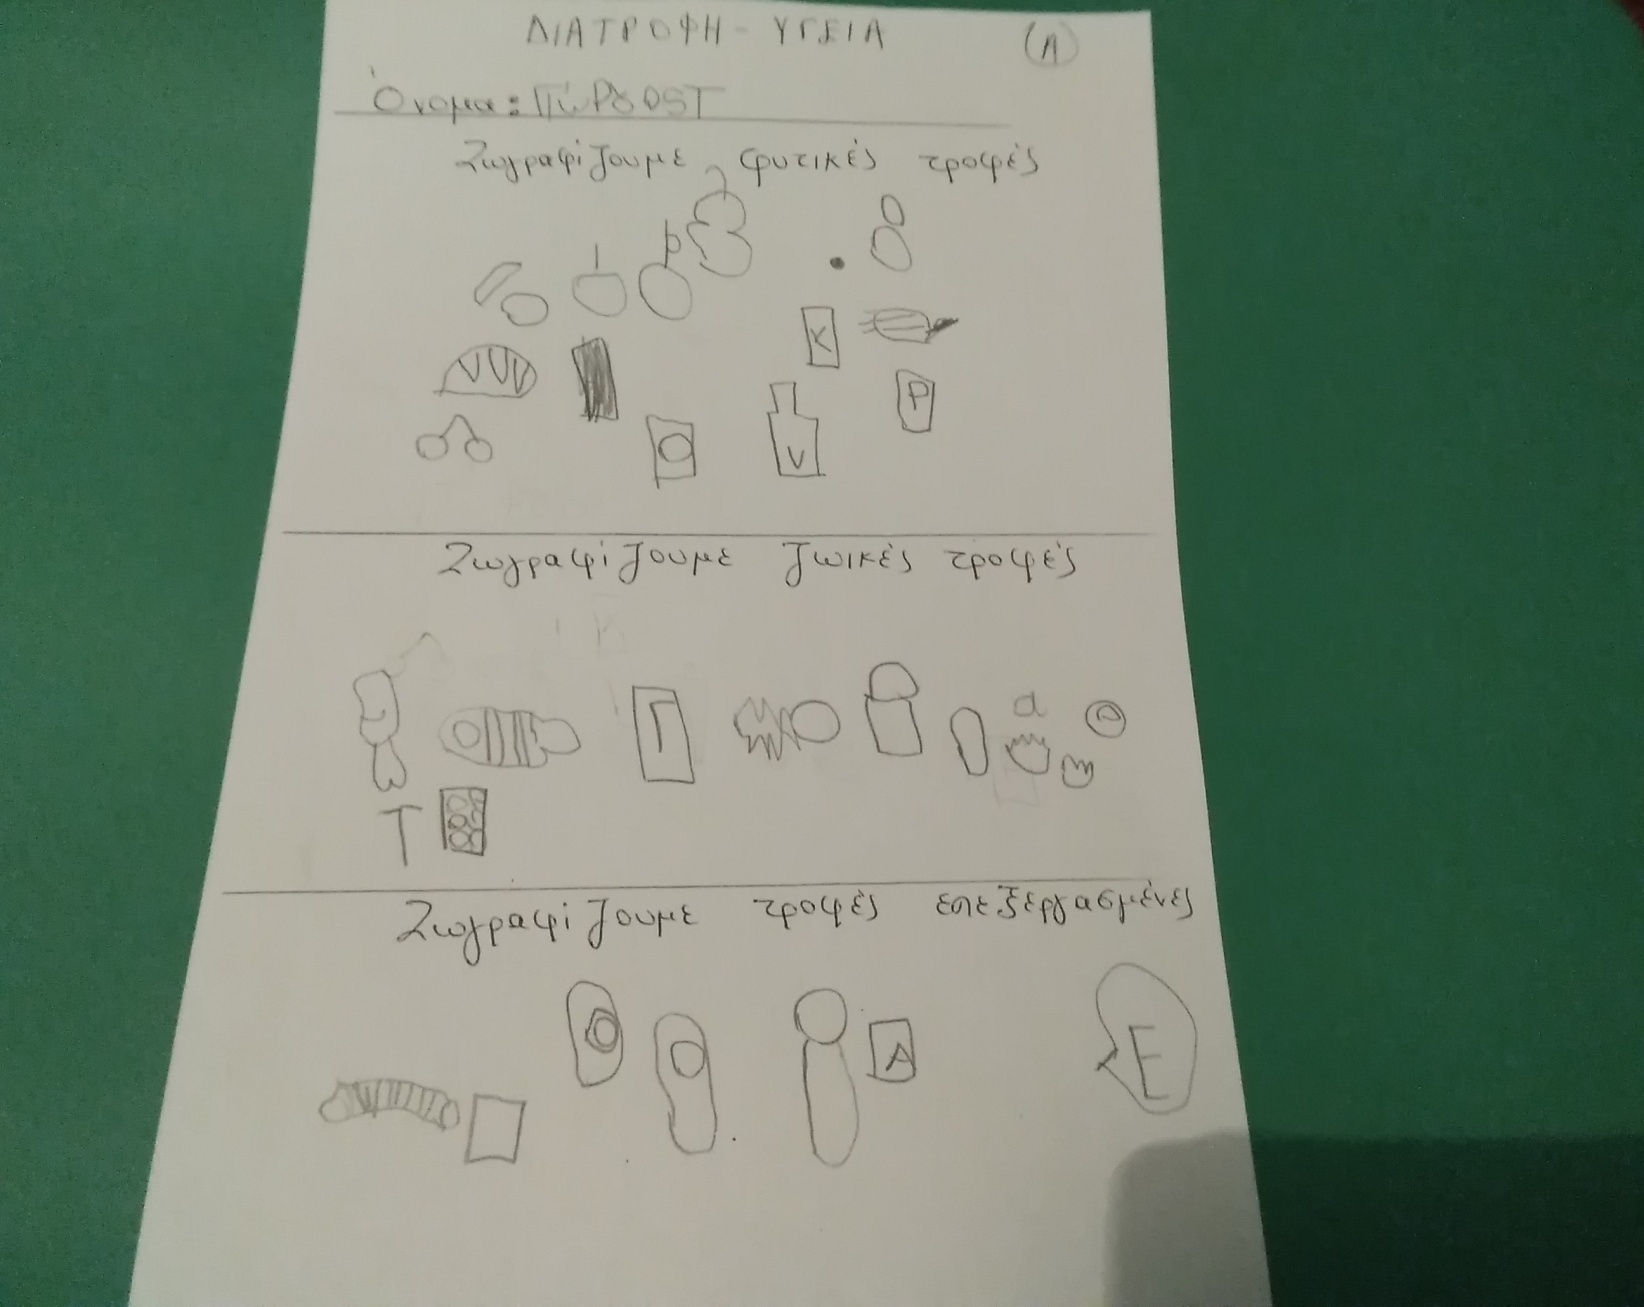 ΔΙΑΤΡΟΦΗ - ΥΓΕΙΑ (Α)
Όνομα:
Ζωγραφίζουμε φυτικές τροφές
K
P
V
Ζωγραφίζουμε ζωικές τροφές
Γ
a
T
Ζωγραφίζουμε τροφές επεξεργασμένες
A
E